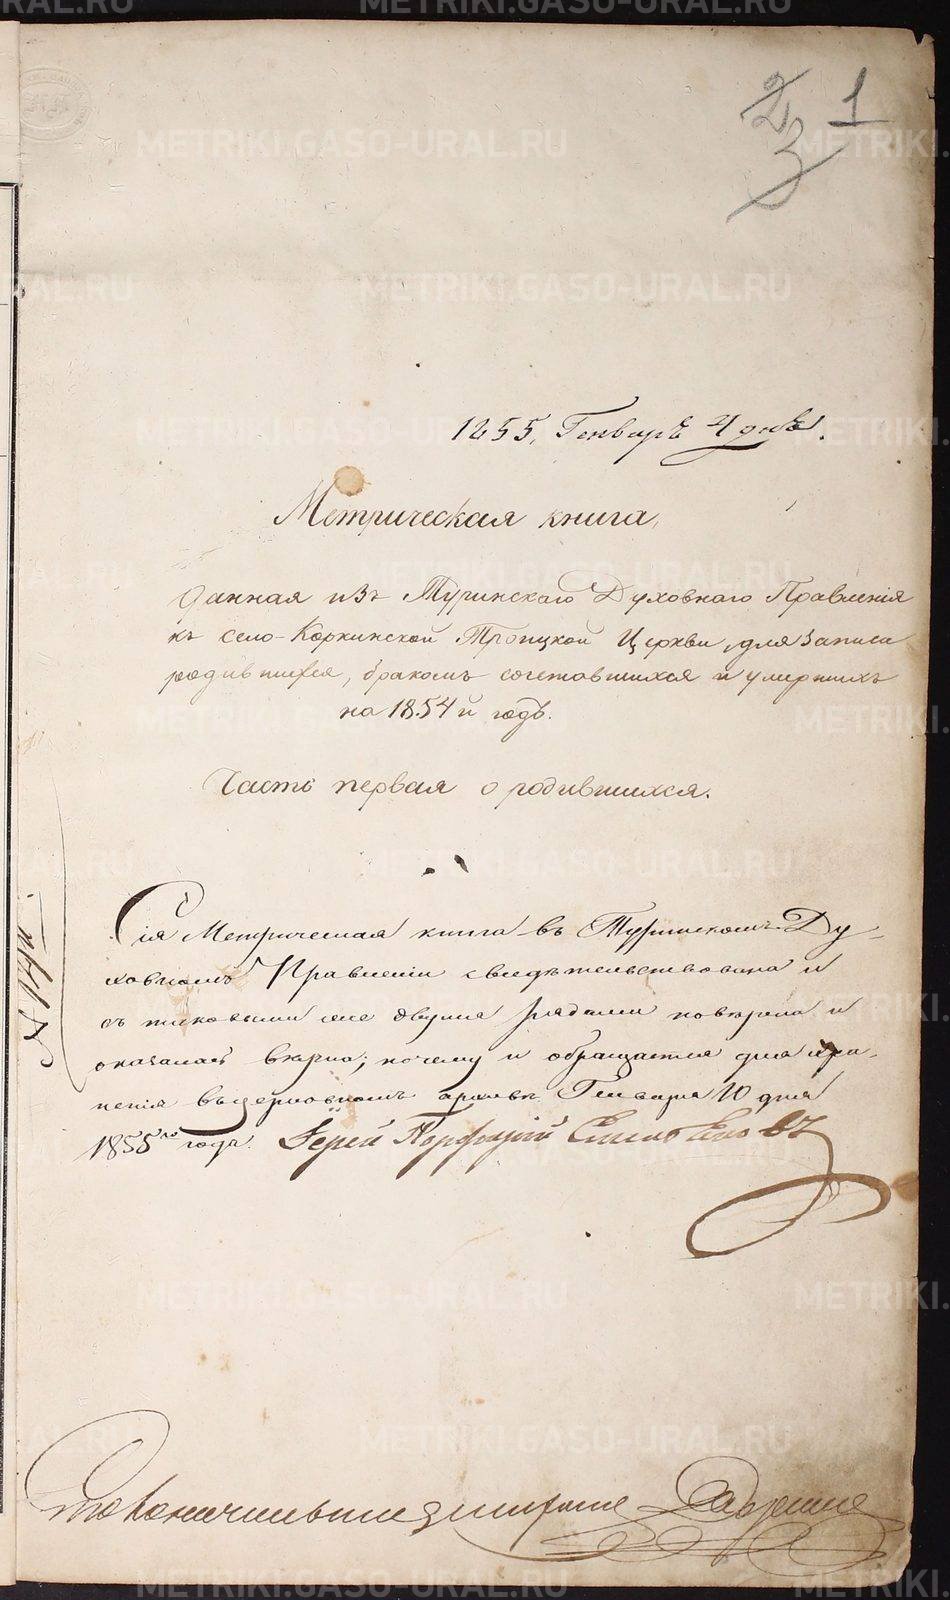 2
3
1
1855, Генварь 4 днь.
Метрическая книга,
данная изъ Туринскаго Духовнаго Правленія
къ село-Коркинской Троицкой Церкви, для записа
родившихся, бракомъ сочетавшихся и умершихъ
на 1854й годъ.
Часть первая о родившихся.
Сія Метрическая книга въ Туринскомъ Ду-
ховномъ Правленіи свидѣтельствована и
съ таковыми же двумя повѣрена и
оказалась вѣрна; почему и обращается для хра-
ненія въ церковномъ архивѣ Генваря 10 дня
1855го года. Іерей Порфирій
METRIKI.GASO-URAL.RU